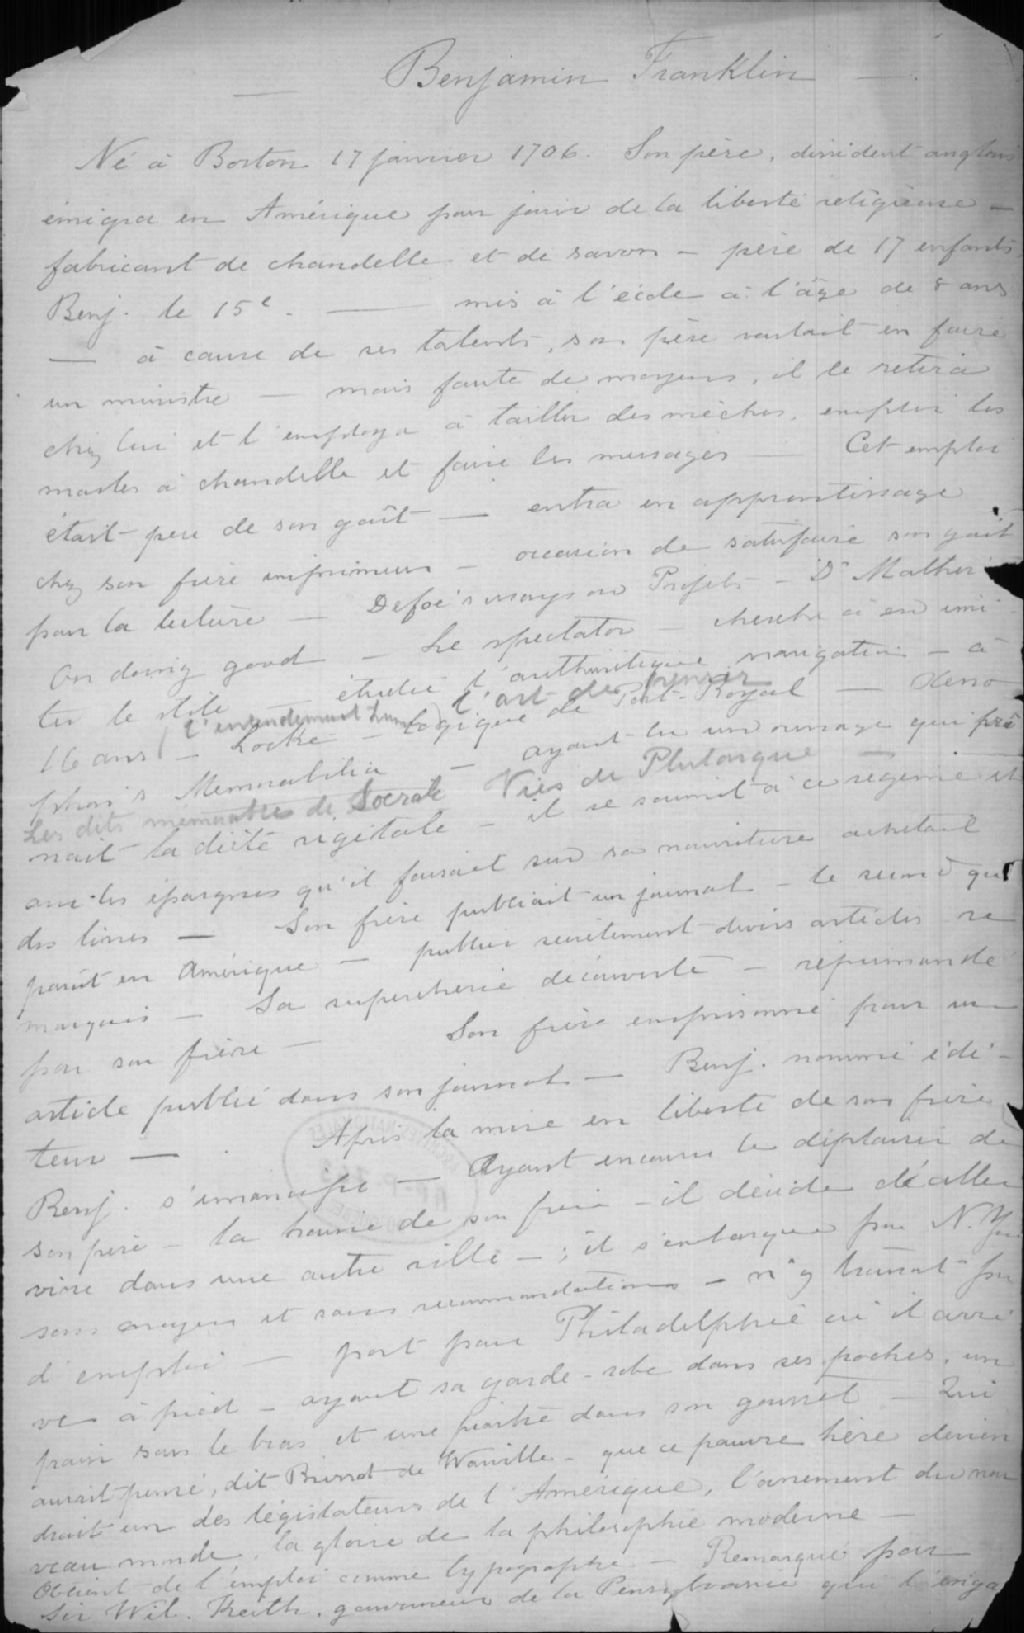 Benjamin Franklin
Né à Boston 17 janvier 1706. Son père, dissident anglais
émigra en Amérique pour jouir de la liberté religieuse —
fabricant de chandelle et de savon — père de 17 enfants
Benj. le 15e. — mis à l'école à l'âge de 8 ans
— à cause de ses talents, son père voulait en faire
un ministre — mais faute de moyens, il le retira
chez lui et l'employa à tailler des mèches, emplir les
moules à chandelle et faire les messages — Cet emploi
était peu de son goût — entra en apprentissage
chez son frère imprimeur — occasion de satisfaire son goût
pour la lecture — Defoe's essays on Projects — Dr Mather
On doing good — Le spectator — cherche à en imi
ter le stile — étudie l'arithmétique navigation — à
l'entendement humain l'art de penser
16 ans — Locke — Logique de Port-Royal — Xeno
phon's Memorabilia — ayant lu un ouvrage qui prô
Les dits mémorables de Socrate Vies de Plutarque —
nait la diète végétale — il se soumit à ce régime et
avec les épargnes qu'il faisait sur sa nourriture achetait
des livres — Son frère publiait un journal — le second qui
parût en Amérique — publie secrètement divers articles re
marqués — Sa supercherie découverte — réprimandé
par son frère — Son frère emprisonné pour un
article publié dans son journal — Benj. nommé édi-
teur — Après la mise en liberté de son frère
Benj. s'émancipe — Ayant encouru le déplaisir de
son père — la haine de son frère — il décide d'aller
vivre dans une autre ville —; il s'embarque pour N. Y
sans moyens et sans recommandations — n'y trouvant pas
d'emploi — part pour Philadelphie où il arri
ve à pied — ayant sa garde-robe dans ses poches, un
pain sous le bras et une piastre dans son gousset — Qui
aurait pensé, dit Brissot de Warville — que ce pauvre hère devien
drait un des législateurs de l'Amérique, l'ornement du nou
veau monde, la gloire de la philosophie moderne —
Obtient de l'emploi comme typographe — Remarqué par
Sir Wil. Keith, gouverneur de la Pensylvanie qui l'enga